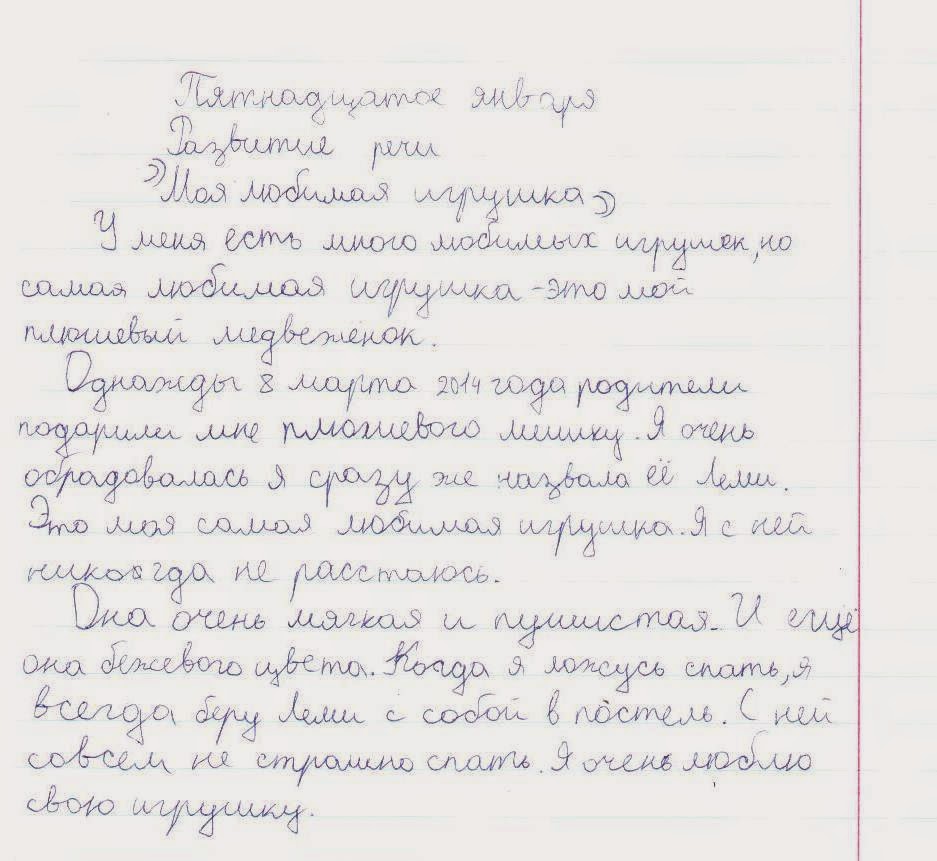 Пятнадцатое января
Развитие речи
"Моя любимая игрушка"
У меня есть много любимых игрушек, но
самая любимая игрушка - это мой
плюшевый медвеженок.
Однажды 8 марта 2014 года родители
подарили мне плюшевого мишку. Я очень
обрадовалась я сразу же назвала её Леми.
Это моя самая любимая игрушка. Я с ней
никогда не расстаюсь.
Она очень мягкая и пушистая. И ещё
она бежевого цвета. Когда я ложусь спать, я
всегда беру Леми с собой в постель. С ней
совсем не страшно спать. Я очень люблю
свою игрушку.